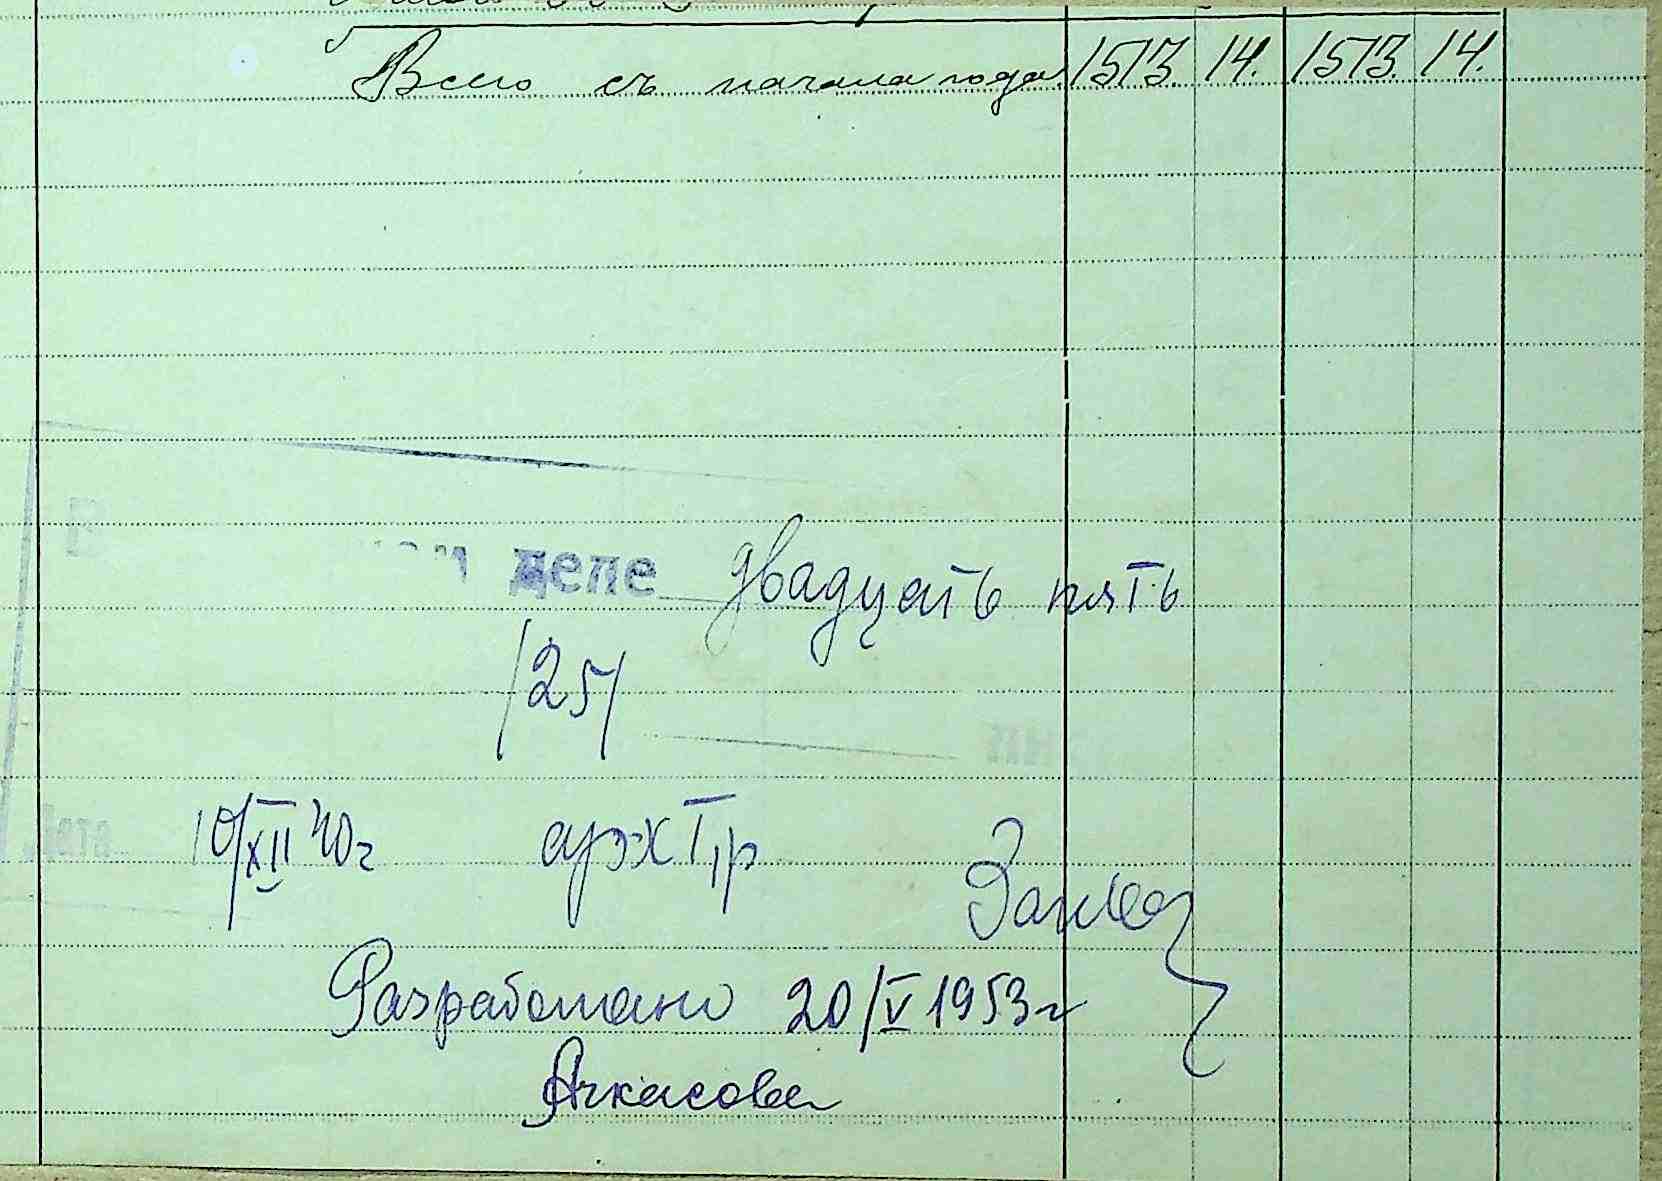 Всего съ начала года 1573. 14. 1573. 14.
деле двадцать пять
/25/
10/XII 40г
Разработано 20/V 1953г
Ачкасова